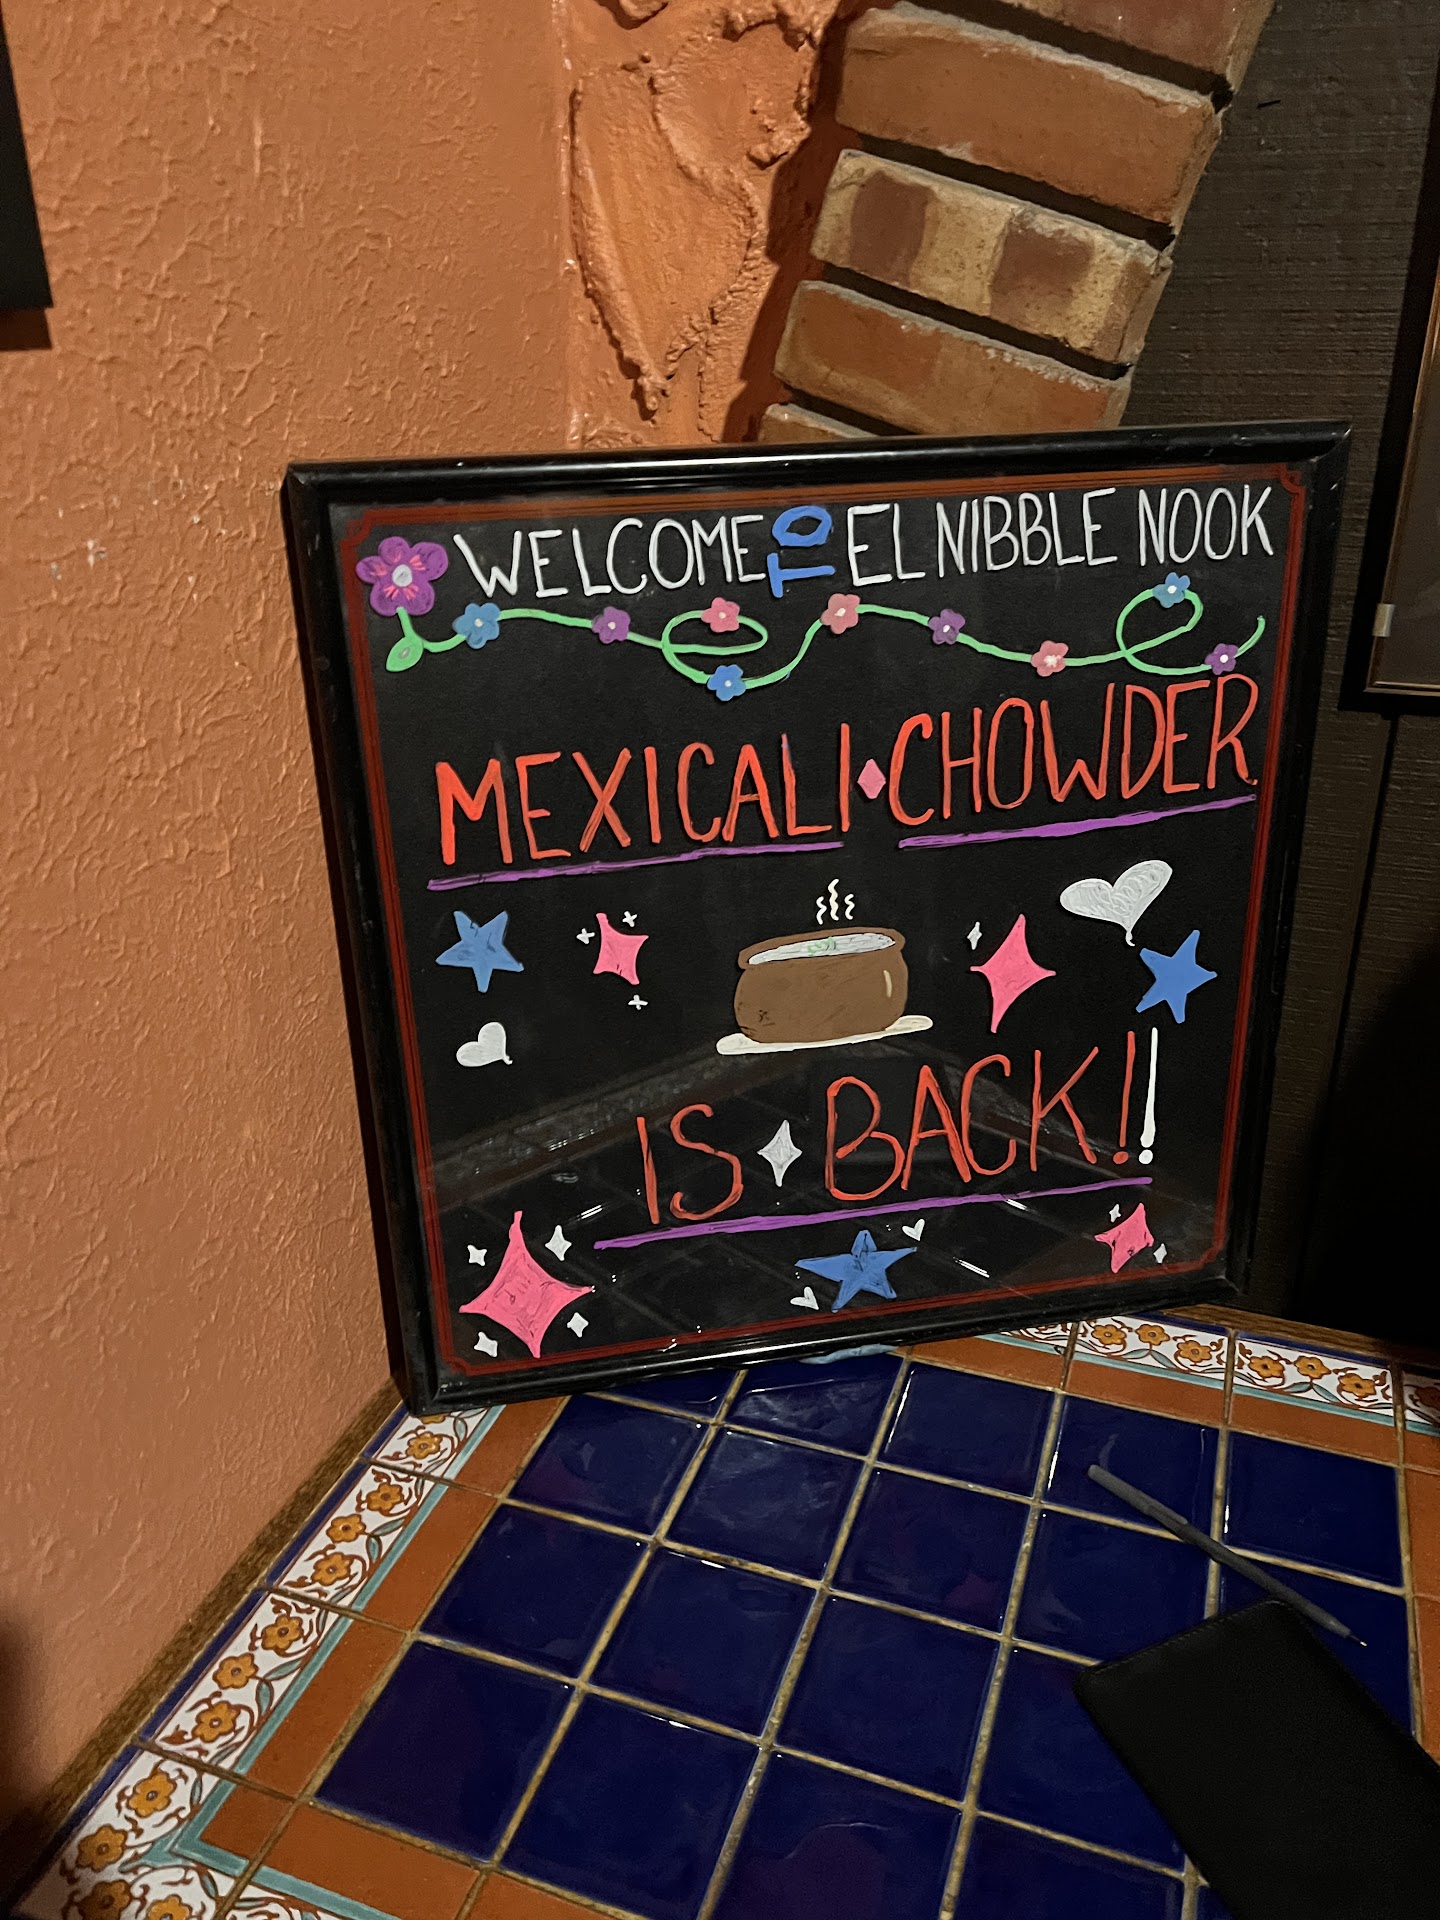 WELCOME TO EL NIBBLE NOOK
MEXICALI CHOWDER
IS BACK!!